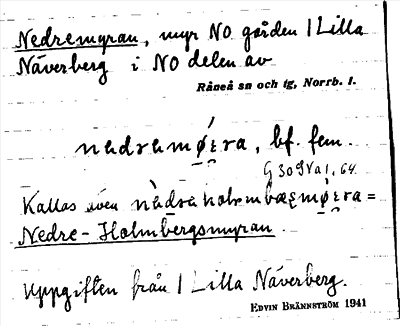 Nedremyran, myr NO gården 1 Lilla
Näverberg i NO delen av
Råneå sn och tg, Norrb. l.
nèdramǿɛra, bf. fem.
Kallas även nèdraholmbæɛmǿɛra =
Nedre-Holmbergsmyran.
Uppgiften från 1 Lilla Näverberg.
EDVIN BRÄNNSTRÖM 1941